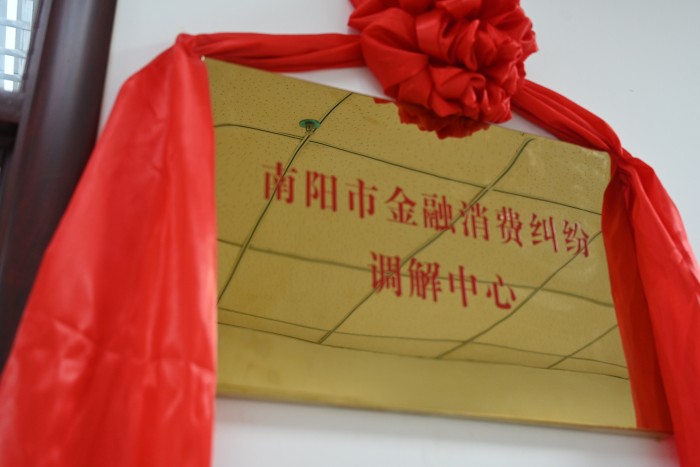 南阳市金融消费纠纷
调解中心